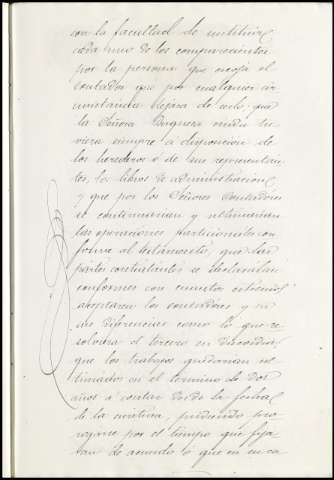 con la facultad de sustituir
cada uno de los comparecientes
por la persona que escoja el
contador que por cualquier cir
cunstancia dejara de serlo; que
la Señora Baguena viuda tu
viera siempre a disposicion de
los herederos ó de sus representan
tes, los libros de administracion,
y que por los Señores Contadores
se continuarian y ultimarian
las operaciones particionales con
forme al testamento, que las
partes contratantes se declaraban
conformes con cuantos estremos
aceptaren los contadores y en
sus diferencias como lo que re
solviera el tercero en discordia;
que los trabajos quedarian ul
timados en el termino de dos
años á contar desde la fecha
de la escritura, pudiendo pro
rogarse por el tiempo que fija
ran de acuerdo lo que en su ca